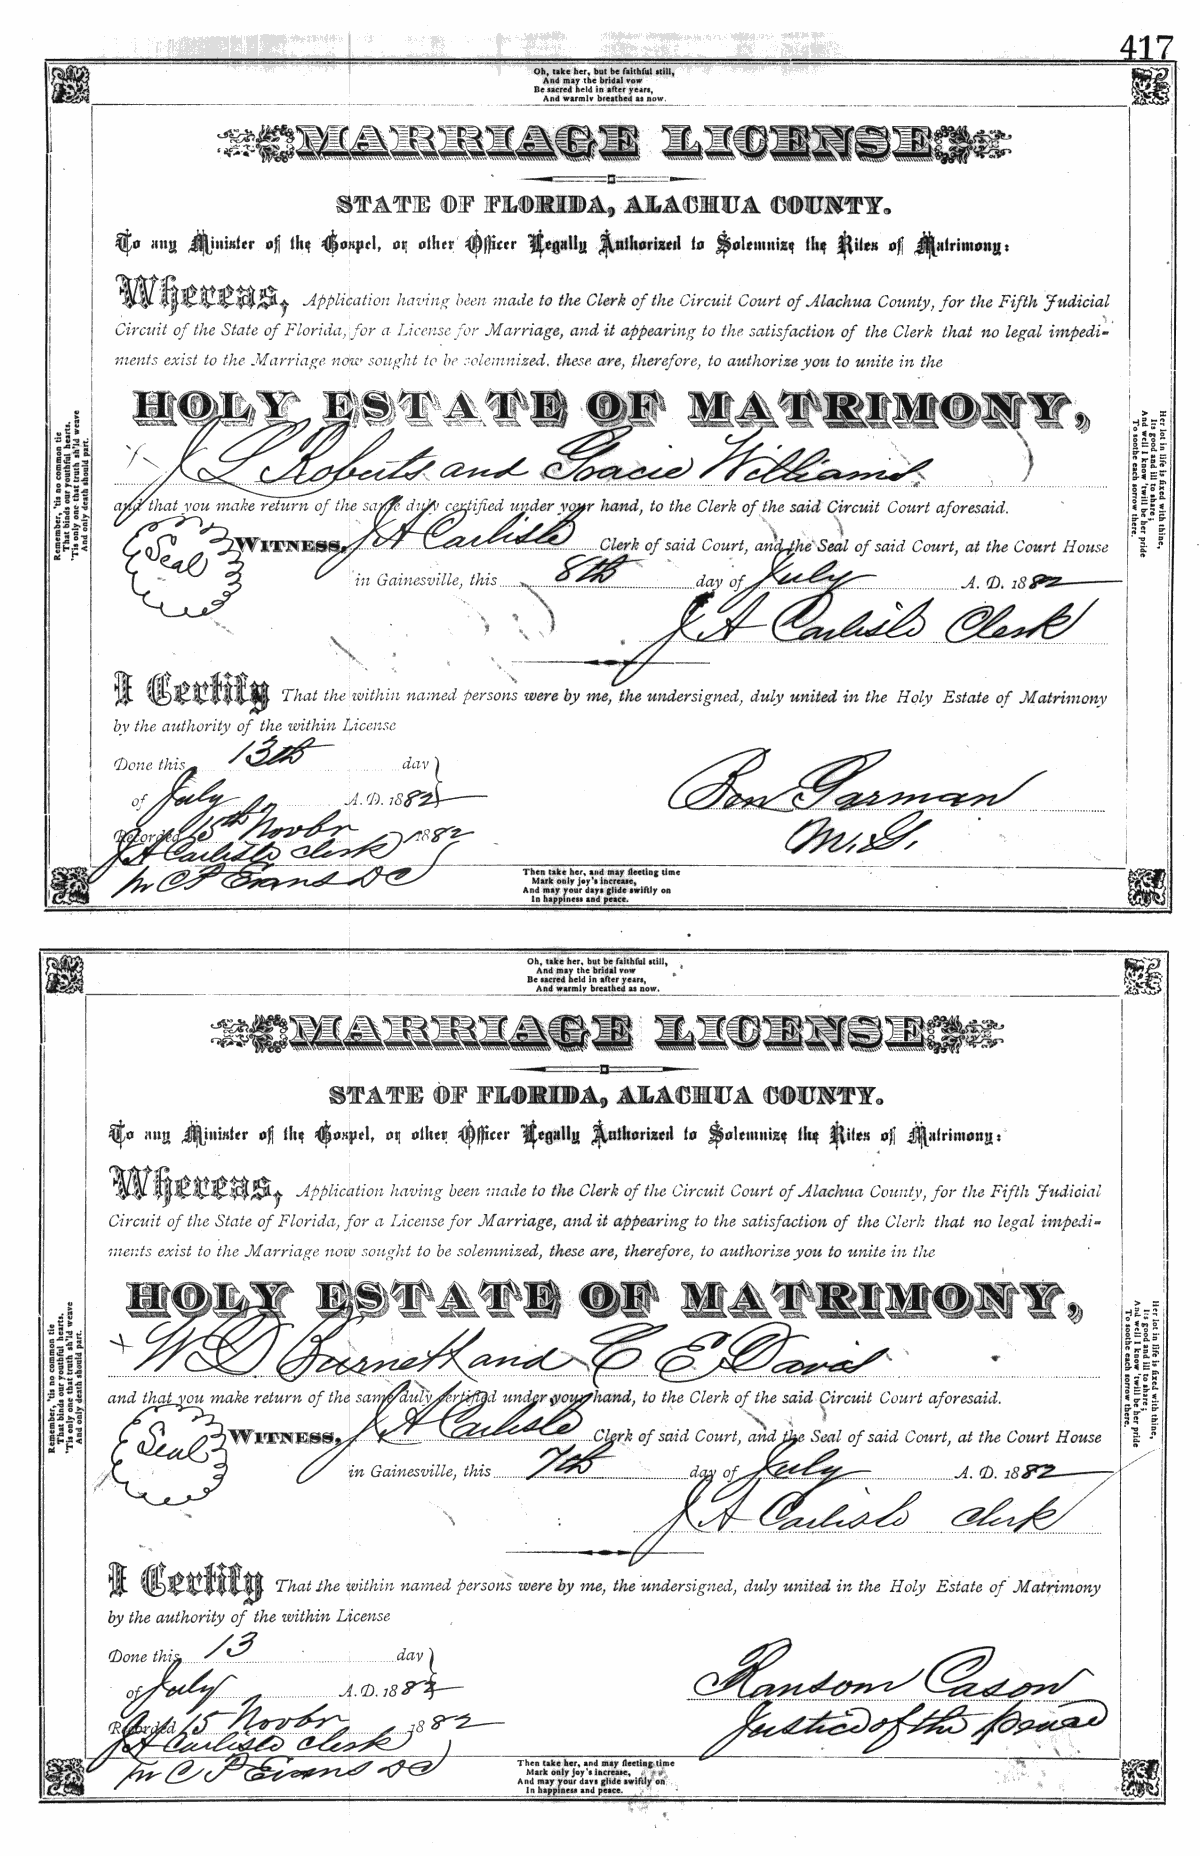 417
Oh, take her, but be faithful still,
And may the bridal vow
Be sacred held in after years,
And warmly breathed as now.
MARRIAGE LICENSE
STATE OF FLORIDA, ALACHUA COUNTY.
To any Minister of the Gospel, or other Officer Legally Authorized to Solemnize the Rites of Matrimony:
Whereas, Application having been made to the Clerk of the Circuit Court of Alachua County, for the Fifth Judicial
Circuit of the State of Florida, for a License for Marriage, and it appearing to the satisfaction of the Clerk that no legal impedi-
ments exist to the Marriage now sought to be solemnized, these are, therefore, to authorize you to unite in the
HOLY ESTATE OF MATRIMONY,
J L Roberts and Gracie Williams
and that you make return of the same duly certified under your hand, to the Clerk of the said Circuit Court aforesaid.
Seal
WITNESS, J A Carlisle Clerk of said Court, and the Seal of said Court, at the Court House
in Gainesville, this 8th day of July A. D. 1882
J A Carlisle Clerk
I Certify That the within named persons were by me, the undersigned, duly united in the Holy Estate of Matrimony
by the authority of the within License
Done this 13th day
of July A. D. 1882
Ben Garman
M. G.
Recorded 15th Novbr 1882
J A Carlisle Clerk
C P Evans D C
Remember, 'tis no common tie
That binds our youthful hearts,
'Tis only one that truth sh'ld weave
And only death should part.
Her lot in life is fixed with thine,
Its good and ill to share;
And well I know 'twill be her pride
To soothe each sorrow there.
Then take her, and may fleeting time
Mark only joy's increase,
And may your days glide swiftly on
In happiness and peace.
Oh, take her, but be faithful still,
And may the bridal vow
Be sacred held in after years,
And warmly breathed as now.
MARRIAGE LICENSE
STATE OF FLORIDA, ALACHUA COUNTY.
To any Minister of the Gospel, or other Officer Legally Authorized to Solemnize the Rites of Matrimony:
Whereas, Application having been made to the Clerk of the Circuit Court of Alachua County, for the Fifth Judicial
Circuit of the State of Florida, for a License for Marriage, and it appearing to the satisfaction of the Clerk that no legal impedi-
ments exist to the Marriage now sought to be solemnized, these are, therefore, to authorize you to unite in the
HOLY ESTATE OF MATRIMONY,
W D Burnett and C E Davis
and that you make return of the same duly certified under your hand, to the Clerk of the said Circuit Court aforesaid.
Seal
WITNESS, J A Carlisle Clerk of said Court, and the Seal of said Court, at the Court House
in Gainesville, this 7th day of July A. D. 1882
J A Carlisle clerk
I Certify That the within named persons were by me, the undersigned, duly united in the Holy Estate of Matrimony
by the authority of the within License
Done this 13 day
of July A. D. 1882
Ransom Cason
Justice of the peace
Recorded 15 Novbr 1882
J A Carlisle clerk
C P Evans D C
Remember, 'tis no common tie
That binds our youthful hearts.
'Tis only one that truth sh'ld weave
And only death should part.
Her lot in life is fixed with thine,
Its good and ill to share;
And well I know 'twill be her pride
To soothe each sorrow there.
Then take her, and may fleeting time
Mark only joy's increase,
And may your days glide swiftly on
In happiness and peace.